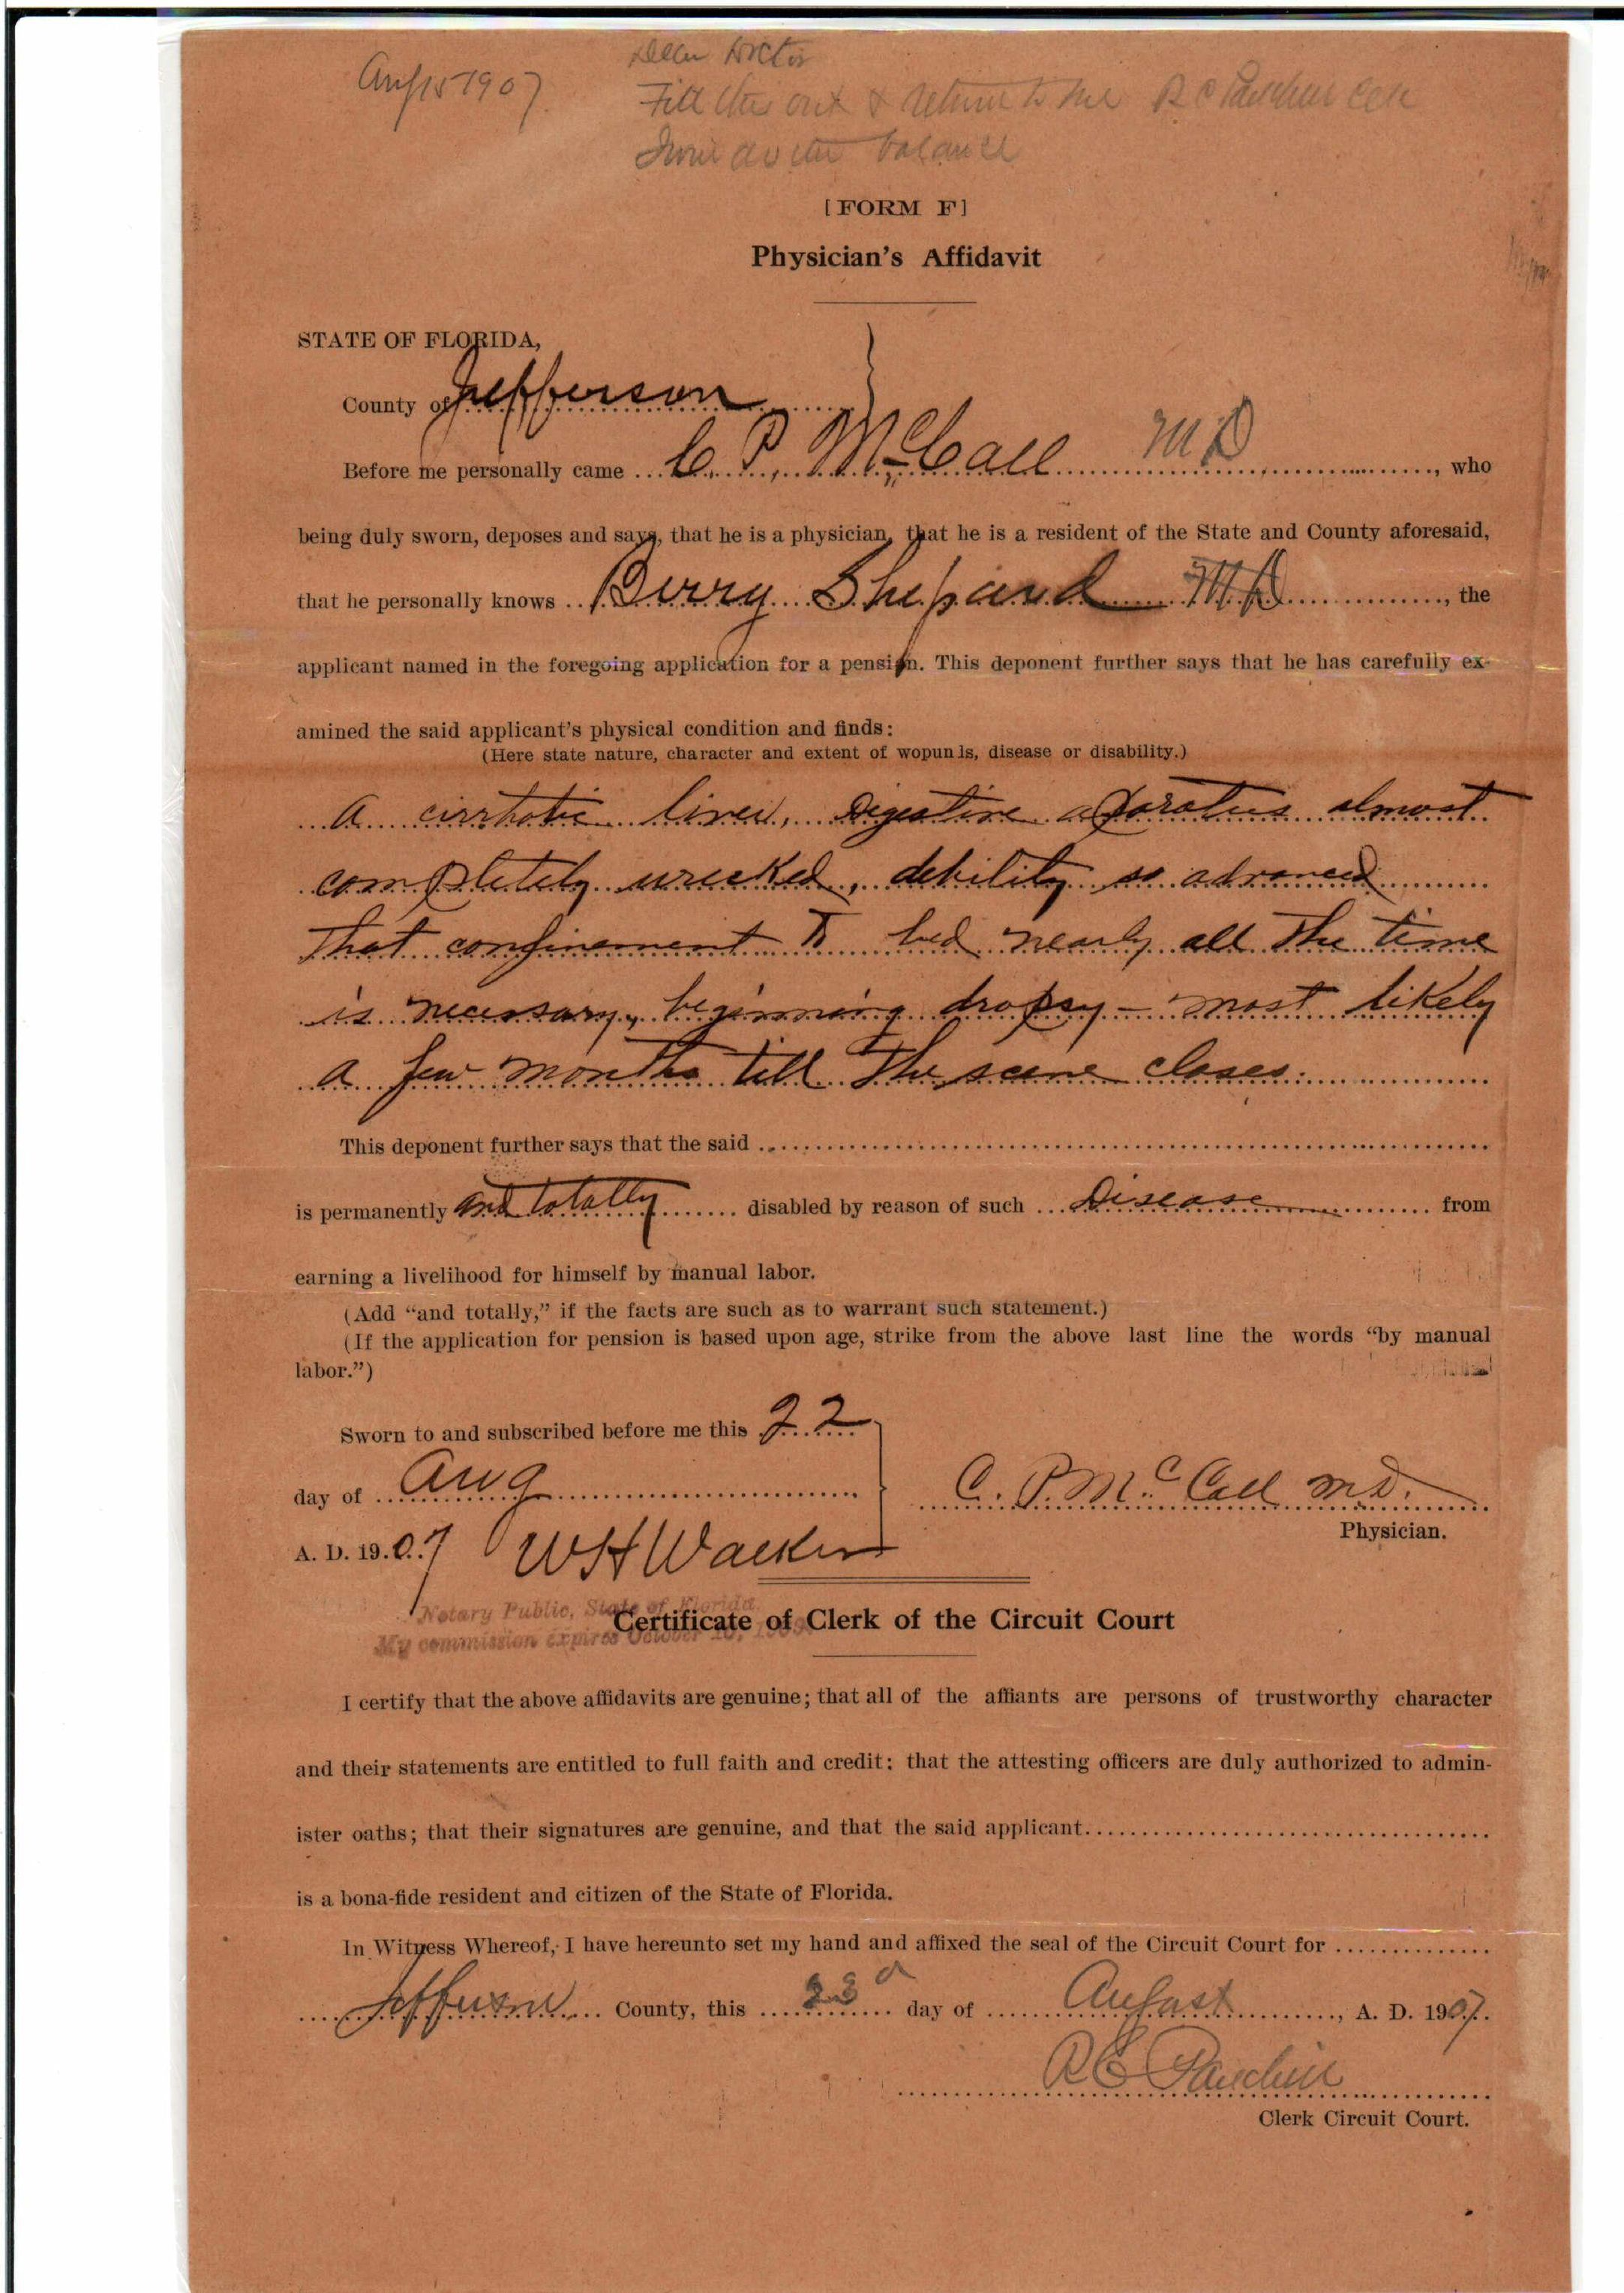 Aug 15 1907
Dear Doctor
Fill this out & return to me R C Parkhill Clk
I will do the balance
[FORM F]
Physician's Affidavit
STATE OF FLORIDA,
County of Jefferson
Before me personally came C. P. McCall MD, who
being duly sworn, deposes and says, that he is a physician, that he is a resident of the State and County aforesaid,
that he personally knows Berry Shepard MD, the
applicant named in the foregoing application for a pension. This deponent further says that he has carefully ex-
amined the said applicant's physical condition and finds:
(Here state nature, character and extent of wopun ls, disease or disability.)
A cirrhotic liver, Digestive aparatus almost
completely wrecked, debility so advanced
that confinement to bed nearly all the time
is necessary, beginning dropsy – most likely
a few months till the scene closes.
This deponent further says that the said
is permanently and totally disabled by reason of such Disease from
earning a livelihood for himself by manual labor.
(Add "and totally," if the facts are such as to warrant such statement.)
(If the application for pension is based upon age, strike from the above last line the words "by manual
labor.")
Sworn to and subscribed before me this 22
day of Aug
C. P. McCall M.D.
Physician.
A. D. 1907 W H Walker
Notary Public, State of Florida.
My commission expires October
Certificate of Clerk of the Circuit Court
I certify that the above affidavits are genuine; that all of the affiants are persons of trustworthy character
and their statements are entitled to full faith and credit: that the attesting officers are duly authorized to admin-
ister oaths; that their signatures are genuine, and that the said applicant
is a bona-fide resident and citizen of the State of Florida.
In Witness Whereof, I have hereunto set my hand and affixed the seal of the Circuit Court for
Jefferson County, this 23d day of August, A. D. 1907.
R C Parkhill
Clerk Circuit Court.